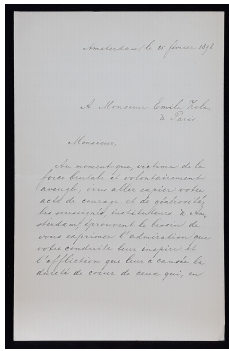 Amsterdam le 25 février 1898
A Monsieur Emile Zola
à Paris
Monsieur,
Au moment que, victime de la
force brutale et volontairement
aveugle, vous allez expier votre
acte de courage et de générosité,
les soussignés, instituteurs à Am-
sterdam, éprouvent le besoin de
vous exprimer l'admiration que
votre conduite leur inspire et
l'affliction que leur a causée la
dureté de coeur de ceux qui, en